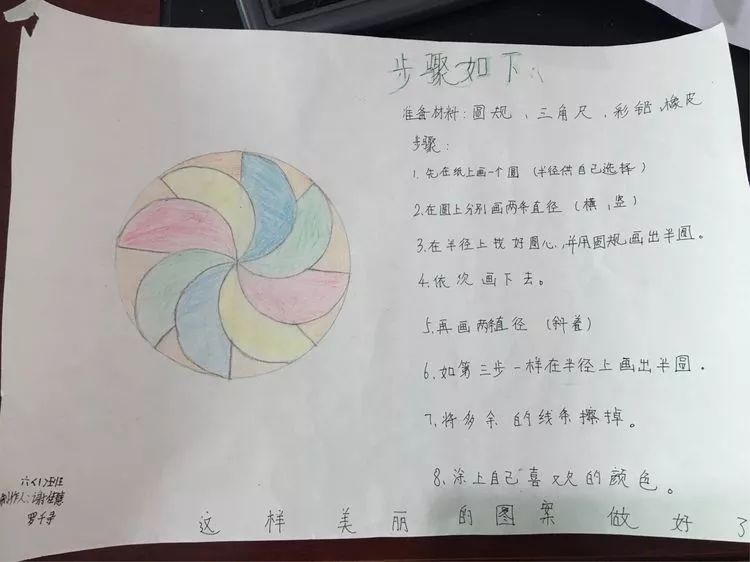 步骤如下:
准备材料:圆规、三角尺、彩铅、橡皮
步骤:
1.先在纸上画一个圆(半径供自己选择)
2.在圆上分别画两条直径(横、竖)
3.在半径上找好圆心,并用圆规画出半圆。
4.依次画下去。
5.再画两条直径(斜着)
6.如第三步一样在半径上画出半圆。
7.将多余的线条擦掉。
8、涂上自己喜欢的颜色。
六〈1〉班
制作人:谢佳
罗千寻
这样美丽的图案做好了